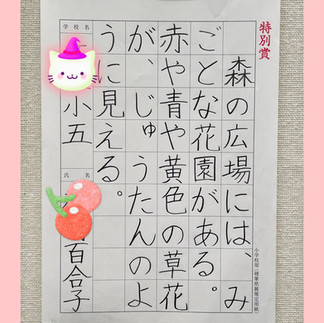 特別賞
森の広場には、み
ごとな花園がある。
赤や青や黄色の草花
が、じゅうたんのよ
うに見える。
学校名
小五
氏名
百合子